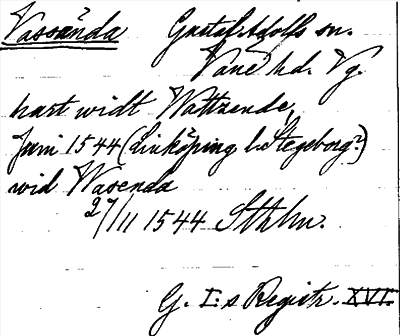 Vassända Gustaf Adolfs sn.
Vane hd. Vg.
hart widt Wattzende,
Juni 1544 (Linköping l. Stegeborg?)
wid Wasenda
27/11 1544 Sthlm.
G. I:s Registr. XVI.